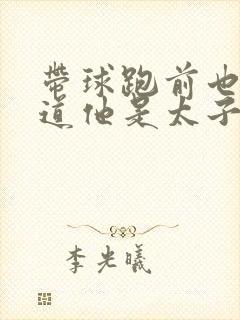 带球跑前也
道他是太子
李光曦